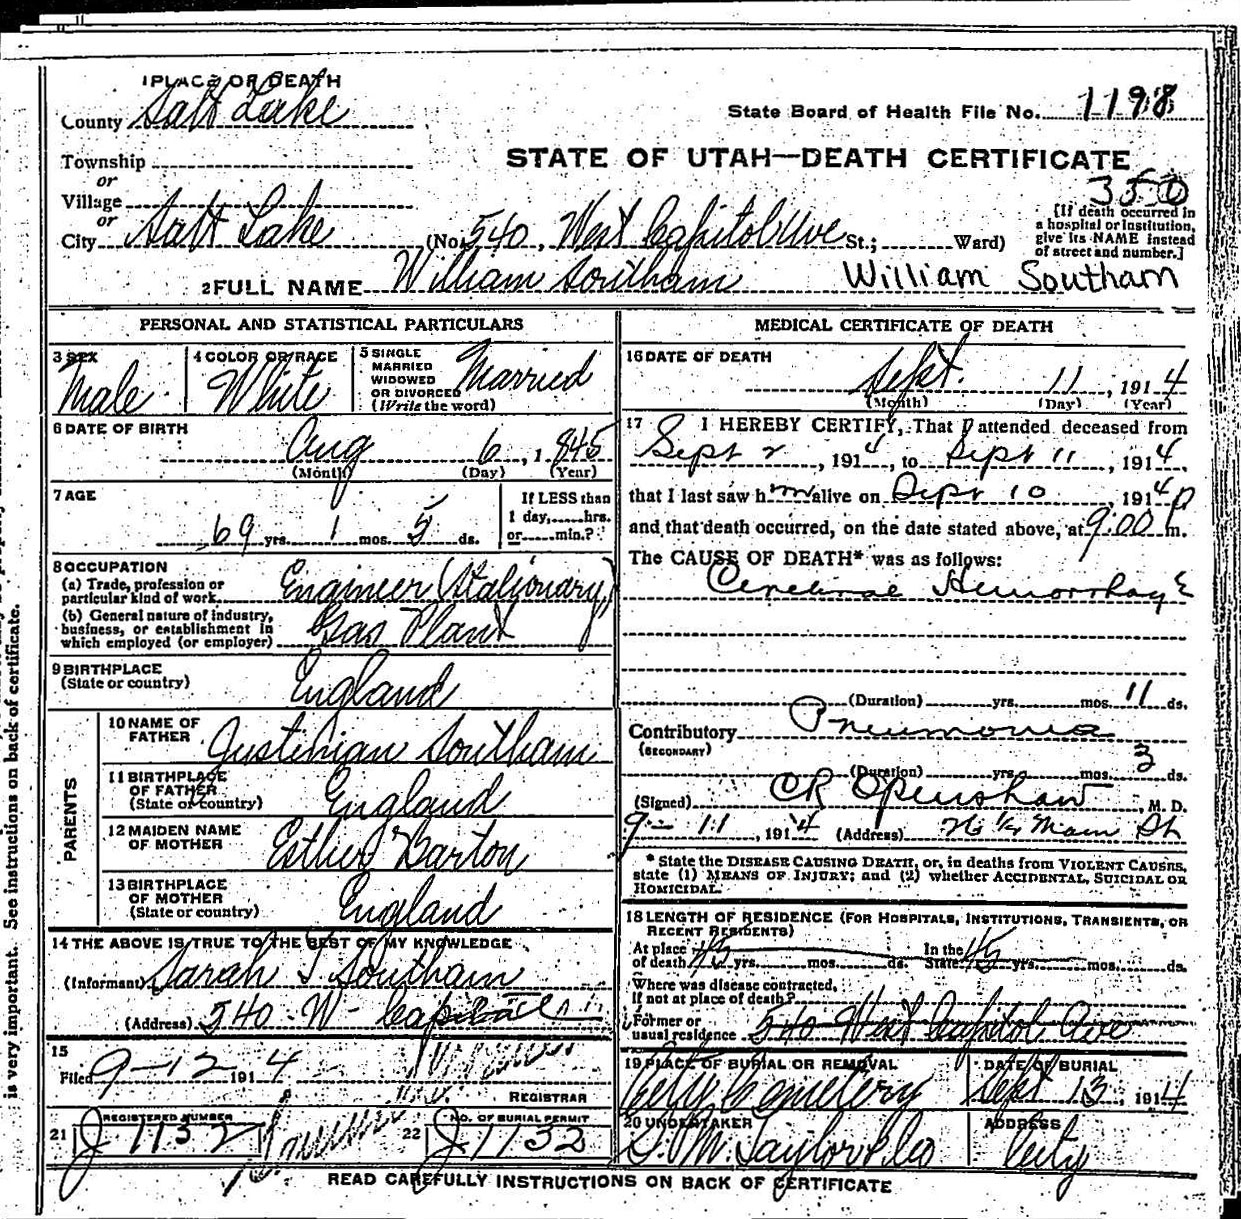 1 PLACE OF DEATH
County Salt Lake
State Board of Health File No. 1198
Township
STATE OF UTAH—DEATH CERTIFICATE
or
Village
350
or
City Salt Lake (No. 540, West Capitol Ave St.; Ward)
[If death occurred in a hospital or institution, give its NAME instead of street and number.]
2 FULL NAME William Southam William Southam
PERSONAL AND STATISTICAL PARTICULARS
3 SEX
Male
4 COLOR OR RACE
White
5 SINGLE
MARRIED
WIDOWED
OR DIVORCED
(Write the word)
Married
6 DATE OF BIRTH
Aug 6, 1845
(Month) (Day) (Year)
7 AGE
69 yrs. 1 mos. 5 ds.
If LESS than
1 day, hrs.
or min.?
8 OCCUPATION
(a) Trade, profession or
particular kind of work Engineer (Stationary)
(b) General nature of industry,
business, or establishment in
which employed (or employer) Gas Plant
9 BIRTHPLACE
(State or country) England
PARENTS
10 NAME OF
FATHER Justinian Southam
11 BIRTHPLACE
OF FATHER
(State or country) England
12 MAIDEN NAME
OF MOTHER Esther Barton
13 BIRTHPLACE
OF MOTHER
(State or country) England
14 THE ABOVE IS TRUE TO THE BEST OF MY KNOWLEDGE
(Informant) Sarah J Southam
(Address) 540 W - Capitol
15
Filed 9-12 1914
REGISTRAR
REGISTERED NUMBER
21 J 1132
NO. OF BURIAL PERMIT
22 J 1132
MEDICAL CERTIFICATE OF DEATH
16 DATE OF DEATH
Sept. 11, 1914
(Month) (Day) (Year)
17 I HEREBY CERTIFY, That I attended deceased from
Sept 2, 1914, to Sept 11, 1914,
that I last saw him alive on Sept 10, 1914
and that death occurred, on the date stated above, at 9:00 P m.
The CAUSE OF DEATH* was as follows:
Cerebral Hemorrhage
(Duration) yrs. mos. 11 ds.
Contributory Pneumonia
(SECONDARY)
(Duration) yrs. mos. 3 ds.
(Signed) CR Openshaw, M. D.
9-11, 1914 (Address) Main St
* State the DISEASE CAUSING DEATH, or, in deaths from VIOLENT CAUSES,
state (1) MEANS OF INJURY; and (2) whether ACCIDENTAL, SUICIDAL OR
HOMICIDAL.
18 LENGTH OF RESIDENCE (FOR HOSPITALS, INSTITUTIONS, TRANSIENTS, OR
RECENT RESIDENTS)
At place In the
of death 45 yrs. mos. ds. State 45 yrs. mos. ds.
Where was disease contracted,
If not at place of death?
Former or
usual residence 540 West Capitol Ave
19 PLACE OF BURIAL OR REMOVAL
City Cemetery
DATE OF BURIAL
Sept 13, 1914
20 UNDERTAKER
S. M. Taylor & Co
ADDRESS
City
READ CAREFULLY INSTRUCTIONS ON BACK OF CERTIFICATE
is very important. See instructions on back of certificate.